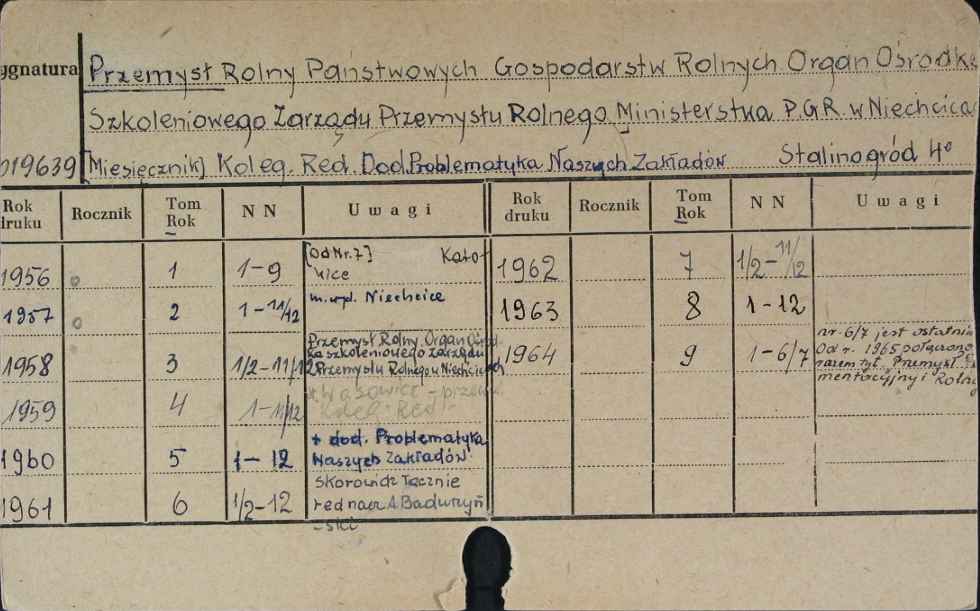 ygnatura Przemysł Rolny Państwowych Gospodarstw Rolnych Organ Ośrodka
Szkoleniowego Zarządu Przemysłu Rolnego Ministerstwa P.G.R. w Niechcica
019639 [Miesięcznik] Koleg. Red. Dod. Problematyka Naszych Zakładów Stalinogród 4º
Rok druku Rocznik Tom Rok NN Uwagi Rok druku Rocznik Tom Rok NN Uwagi
1956 1 1-9 [Od Nr. 7] Kato- wice 1962 7 1/2-11/12
1957 2 1-11/12 m. wyd. Niechcice 1963 8 1-12
1958 3 1/2-11/12 Przemysł Rolny. Organ Ośrod- ka szkoleniowego Zarządu Przemysłu Rolnego w Niechcicach 1964 9 1-6/7 nr 6/7 jest ostatnim Od r. 1965 połączono
1959 4 1-11/12 Koleg. Red.
1960 5 1-12 + dod. Problematyka Naszych Zakładów
1961 6 1/2-12 Skorowidz łącznie
red nacz A. Badurzyń
-ski